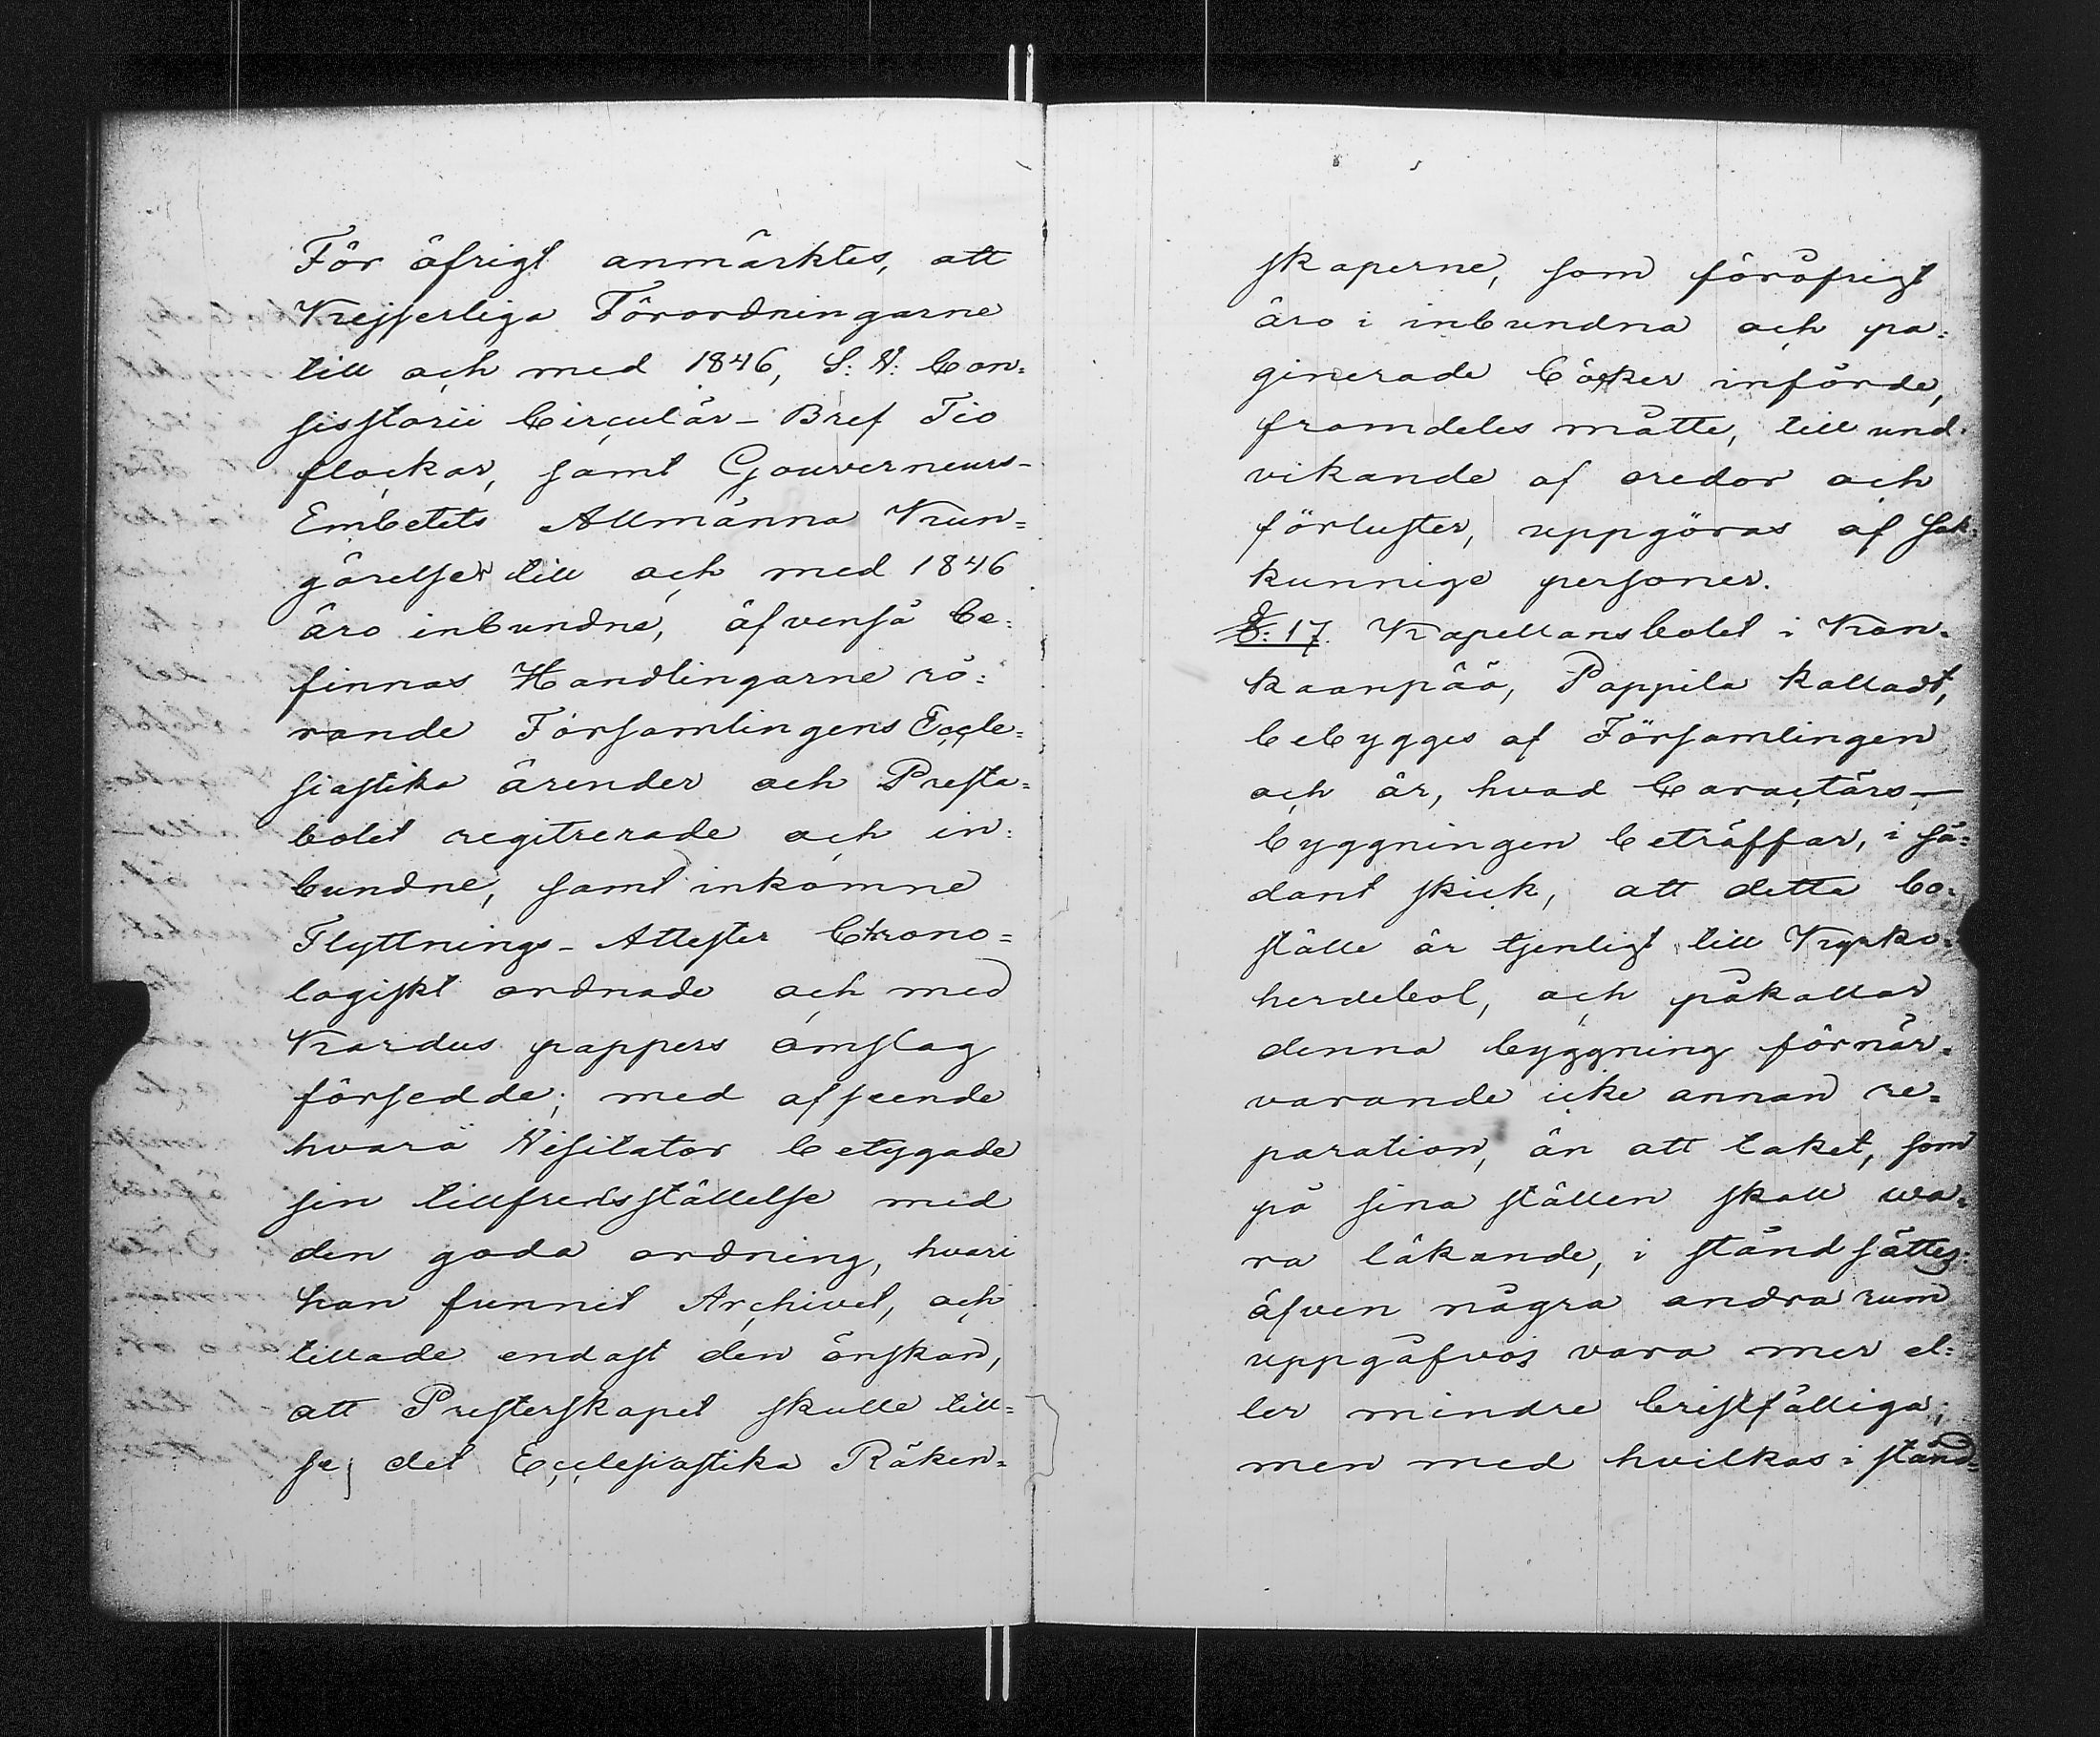 För öfrigt anmärktes, att
Kejserliga Förordningarne
till och med 1846, S: V: Con=
sistorii Circulär-Bref Tio
flockar, samt Gouverneurs-
Embetets Allmänna Kun=
görelser till och med 1846
äro inbundne, äfvenså be=
finnas Handlingarne rö=
rande Församlingens Eccle=
siastika ärender och Presta=
bolet regitrerade och in=
bundne, samt inkomne
Flyttnings-Attester Chrono=
logiskt ordnade och med
Kardus pappers omslag
försedde; med afseende
hvarå Visitator betygade
sin tillfredsställelse med
den goda ordning, hvari
han funnit Archivet, och
tillade endast den önskan,
att Presterskapet skulle till=
se, det Ecclesiastika Räken=
skaperne, som föröfrigt
äro i inbundna och pa=
ginerade böcker införde,
framdeles måtte, till und=
vikande af oredor och
förluster, uppgöras af sak=
kunnige personer.
§: 17. Kapellansbolet i Kan=
kaanpää, Pappila kalladt,
bebygges af Församlingen
och är, hvad Caractärs-
byggningen beträffar, i så=
dant skick, att detta bo=
ställe är tjenligt till Kyrko=
herdebol, och påkallar
denna byggning förnär=
varande icke annan re=
paration, än att taket, som
på sina ställen skall va=
ra läkande, i stånd sättes:
äfven några andra rum
uppgåfvos vara mer el=
ler mindre bristfälliga;
men med hvilkas i stånd=